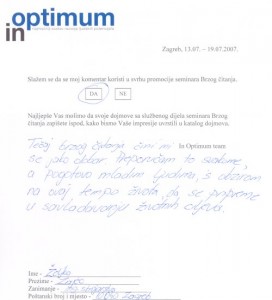 optimum
in
Zagreb, 13.07. – 19.07.2007.
Slažem se da se moj komentar koristi u svrhu promocije seminara Brzog čitanja.
DA NE
Najljepše Vas molimo da svoje dojmove sa službenog dijela seminara Brzog
čitanja zapišete ispod, kako bismo Vaše impresije uvrstili u katalog dojmova.
Tečaj brzog čitanja čini mi
In Optimum team
se jako dobar. Preporučam to svakome,
a pogotovo mladim ljudima, s obzirom
na ovaj tempo života, da se pripreme
u savladavanju životnih ciljeva.
Ime -
Prezime -
Zanimanje -
Poštanski broj i mjesto - Zagreb